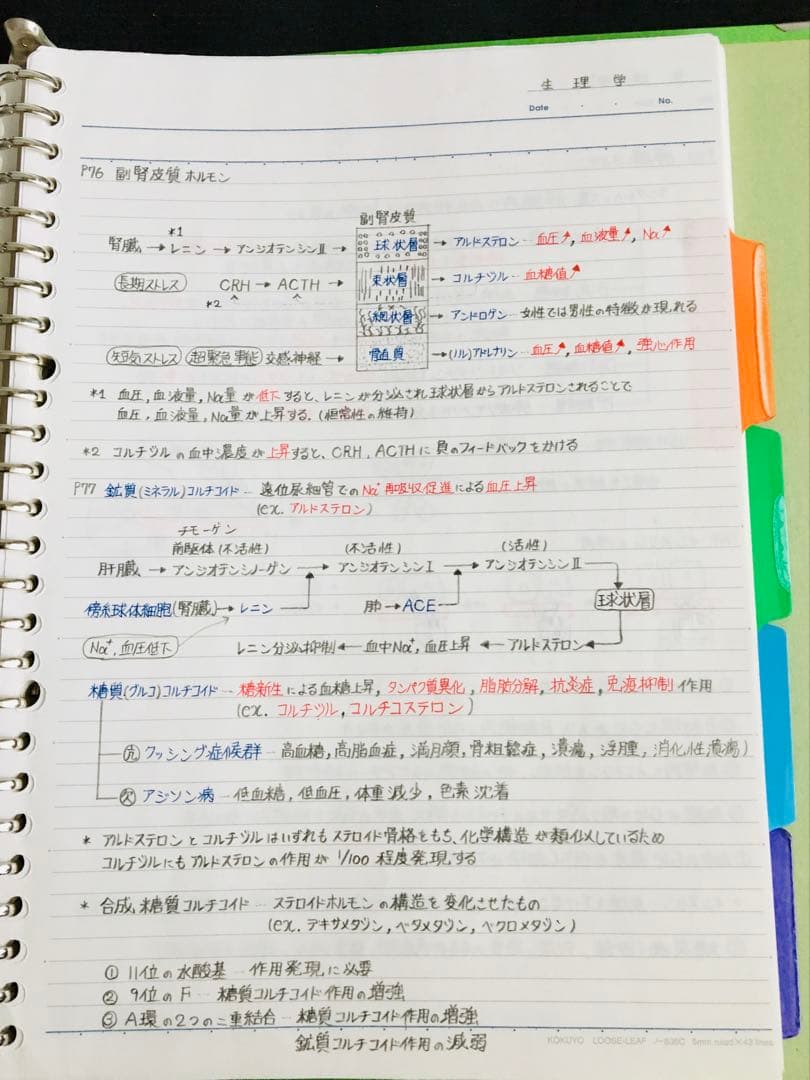 生理学
Date ・ ・ No.
P76 副腎皮質ホルモン
副腎皮質
*1
腎臓→レニン→アンジオテンシンⅡ→球状層→アルドステロン…血圧↗, 血液量↗, Na↗
長期ストレス CRH→ACTH→束状層→コルチゾル…血糖値↗
*2
網状層→アンドロゲン…女性では男性の特徴が現れる
短気ストレス 超緊急事態 交感神経→髄質→(ノル)アドレナリン…血圧↗, 血糖値↗, 強心作用
*1 血圧, 血液量, Na量が低下すると、レニンが分泌され球状層からアルドステロンされることで
血圧, 血液量, Na量が上昇する. (恒常性の維持)
*2 コルチゾルの血中濃度が上昇すると、CRH, ACTHに負のフィードバックをかける
P77 鉱質(ミネラル)コルチコイド…遠位尿細管でのNa⁺再吸収促進による血圧上昇
(ex. アルドステロン)
チモーゲン
前駆体(不活性) (不活性) (活性)
肝臓→アンジオテンシノーゲン→アンジオテンシンⅠ→アンジオテンシンⅡ
傍糸球体細胞(腎臓)→レニン 肺→ACE 球状層
Na⁺, 血圧低下 レニン分泌抑制←血中Na⁺, 血圧上昇←アルドステロン
糖質(グルコ)コルチコイド…糖新生による血糖上昇, タンパク質異化, 脂肪分解, 抗炎症, 免疫抑制作用
(ex. コルチゾル, コルチコステロン)
㋕ クッシング症候群…高血糖, 高脂血症, 満月顔, 骨粗鬆症, 潰瘍, 浮腫, 消化性潰瘍)
㋛ アジソン病…低血糖, 低血圧, 体重減少, 色素沈着
* アルドステロンとコルチゾルはいずれもステロイド骨格をもち、化学構造が類似しているため
コルチゾルにもアルドステロンの作用が1/100程度発現する
* 合成糖質コルチコイド…ステロイドホルモンの構造を変化させたもの
(ex. デキサメタゾン, ベタメタゾン, ベクロメタゾン)
① 11位の水酸基…作用発現に必要
② 9位のF…糖質コルチコイド作用の増強
③ A環の2つの二重結合…糖質コルチコイド作用の増強
鉱質コルチコイド作用の減弱
KOKUYO LOOSE-LEAF ノ-836C 5mm ruled×43 lines